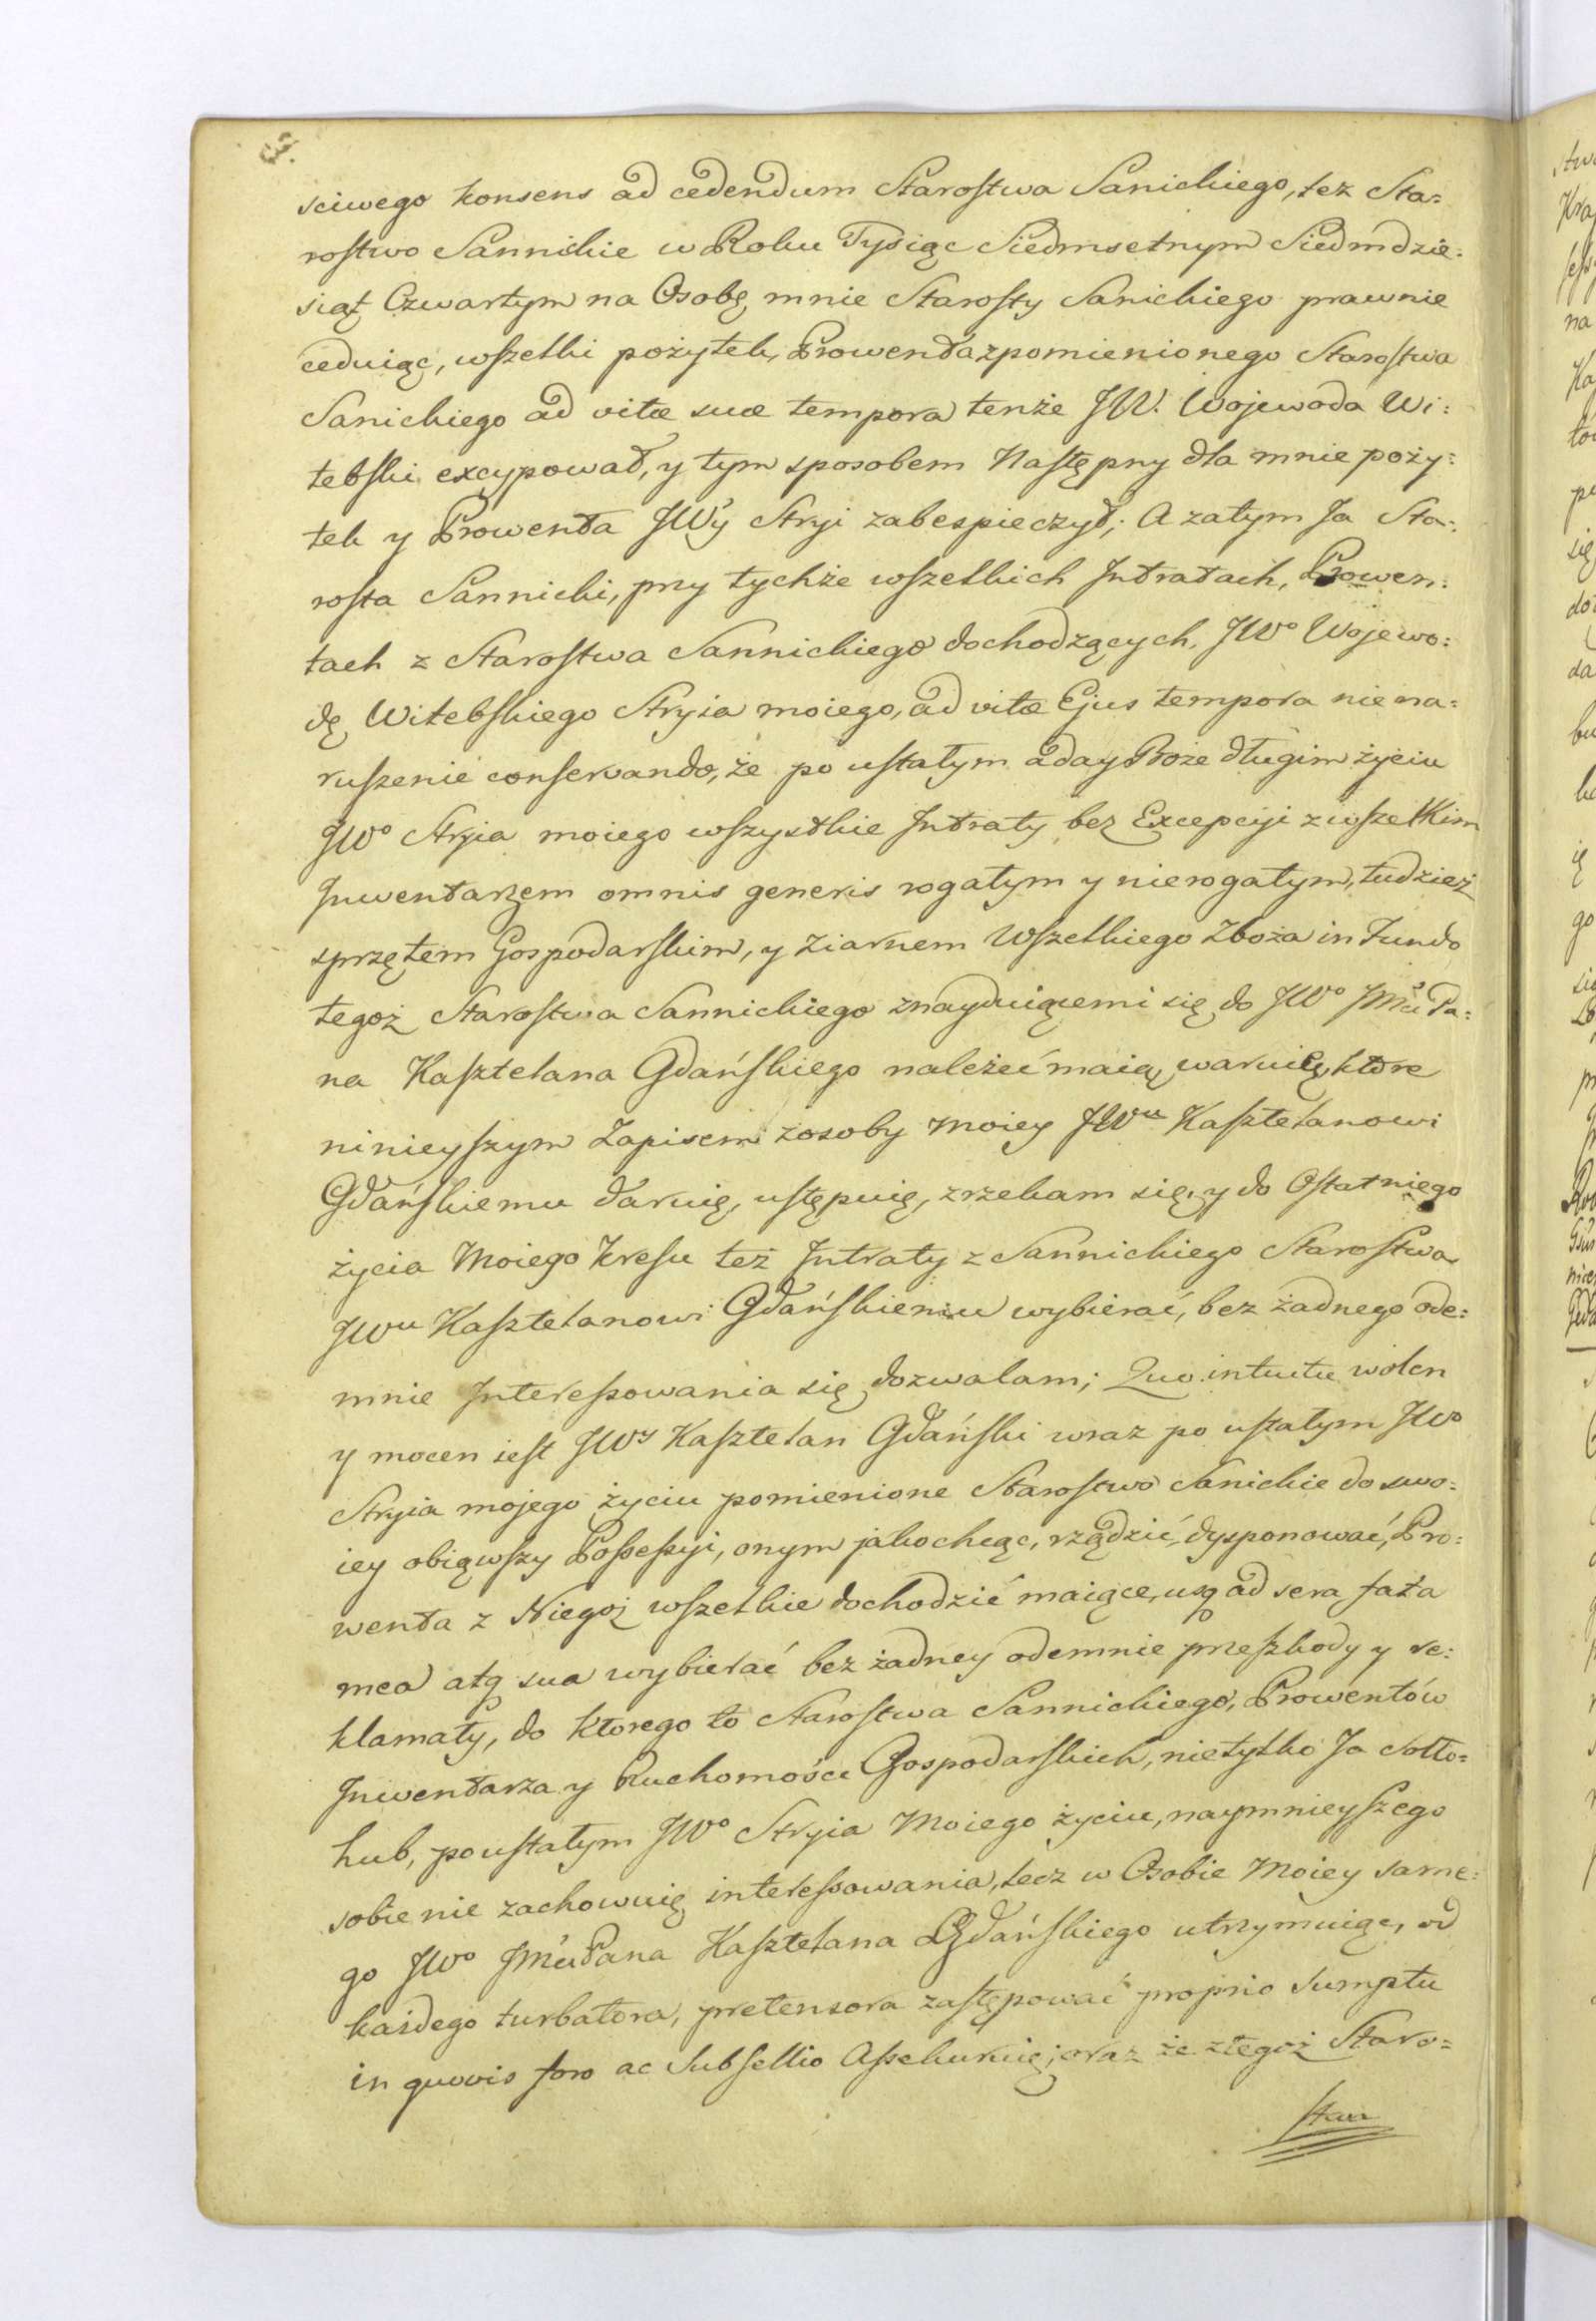 sciwego konsens ad cedendum Starostwa Sanickiego, też Sta=
rostwo Sannickie w Roku Tysiąc Siedmsetnym Siedmdzie=
siąt Czwartym na Osobę mnie Starosty Sanickiego prawnie
ceduiąc, wszelki pożytek, Prowenta z pomienionego Starostwa
Sanickiego ad vitæ suæ tempora tenże JW. Wojewoda Wi=
tebski excypował, y tym sposobem Następny dla mnie poży=
tek y Prowenta JWy Stryi zabespieczył; A zatym Ja Sta=
rosta Sannicki, przy tychże wszelkich Jntratach, Prowen=
tach z Starostwa Sannickiego dochodzących, JWo Wojewo=
dę Witebskiego Stryia moiego, ad vitæ Ejus tempora niena=
ruszenie conservando, że po ustałym aday Boże długim życiu
JWo Stryia moiego wszystkie Jntraty bez Excepcyi z wszelkim
Jnwentarzem omnis generis rogatym y nierogatym, tudzież
sprzętem Gospodarskim, y Ziarnem Wszelkiego Zboża in Fundo
tegoż Starostwa Sannickiego znayduiącemi się do JWo JMci Pa=
na Kasztelana Gdańskiego należeć maią, waruię, które
ninieyszym Zapisem z osoby moiey JWu Kasztelanowi
Gdańskiemu daruię, ustępuię, zrzekam się, y do Ostatniego
życia Moiego kresu też Jntraty z Sannickiego Starostwa
JWu Kasztelanowi Gdańskiemu wybierać, bez żadnego ode=
mnie Jnteressowania się dozwalam; Quo intuitu wolen
y mocen iest JWy Kasztelan Gdański wraz po ustałym JWo
Stryia mojego życiu pomienione Starostwo Sanickie do swo=
iey obiąwszy Possessyi, onym jako chcąc, rządzić, dysponować, Pro=
wenta z Niegoż wszelkie dochodzić maiące, usq ad sera fata
mea atq sua wybierać bez żadney odemnie przeszkody y re=
klamaty, do ktorego to Starostwa Sannickiego, Prowentów
Jnwentarza y Ruchomości Gospodarskich, nietylko Ja Sołło=
hub, po ustałym JWo Stryia Moiego życiu, naymnieyszego
sobie nie zachowuię interessowania, lecz w Osobie Moiey same=
go JWo JMci Pana Kasztelana Gdańskiego utrzymuiąc, od
każdego turbatora, pretensora zastępować proprio Sumptu
in quovis foro ac Subsellio Assekuruię; oraz że z tegoż Staro=
stwa